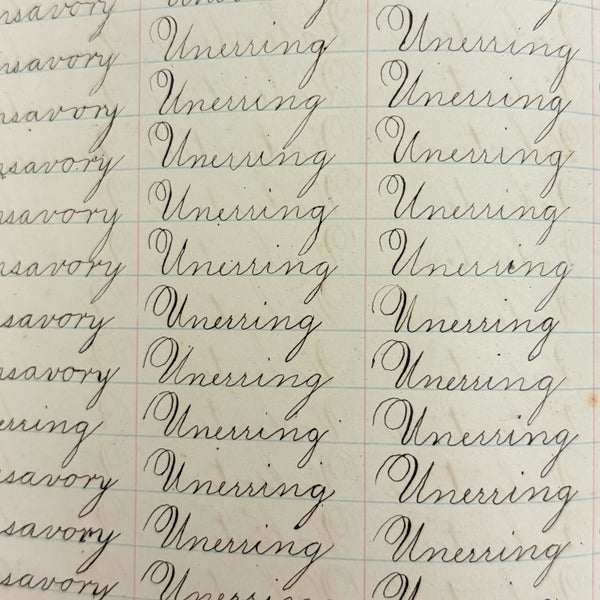 nsavory
nsavory Unerring Unerring
nsavory Unerring Unerring
nsavory Unerring Unerring
nsavory Unerring Unerring
nsavory Unerring Unerring
savory Unerring Unerring
nsavory Unerring Unerring
erring Unerring Unerring
nsavory Unerring Unerring
nsavory Unerring Unerring
savory Unerring